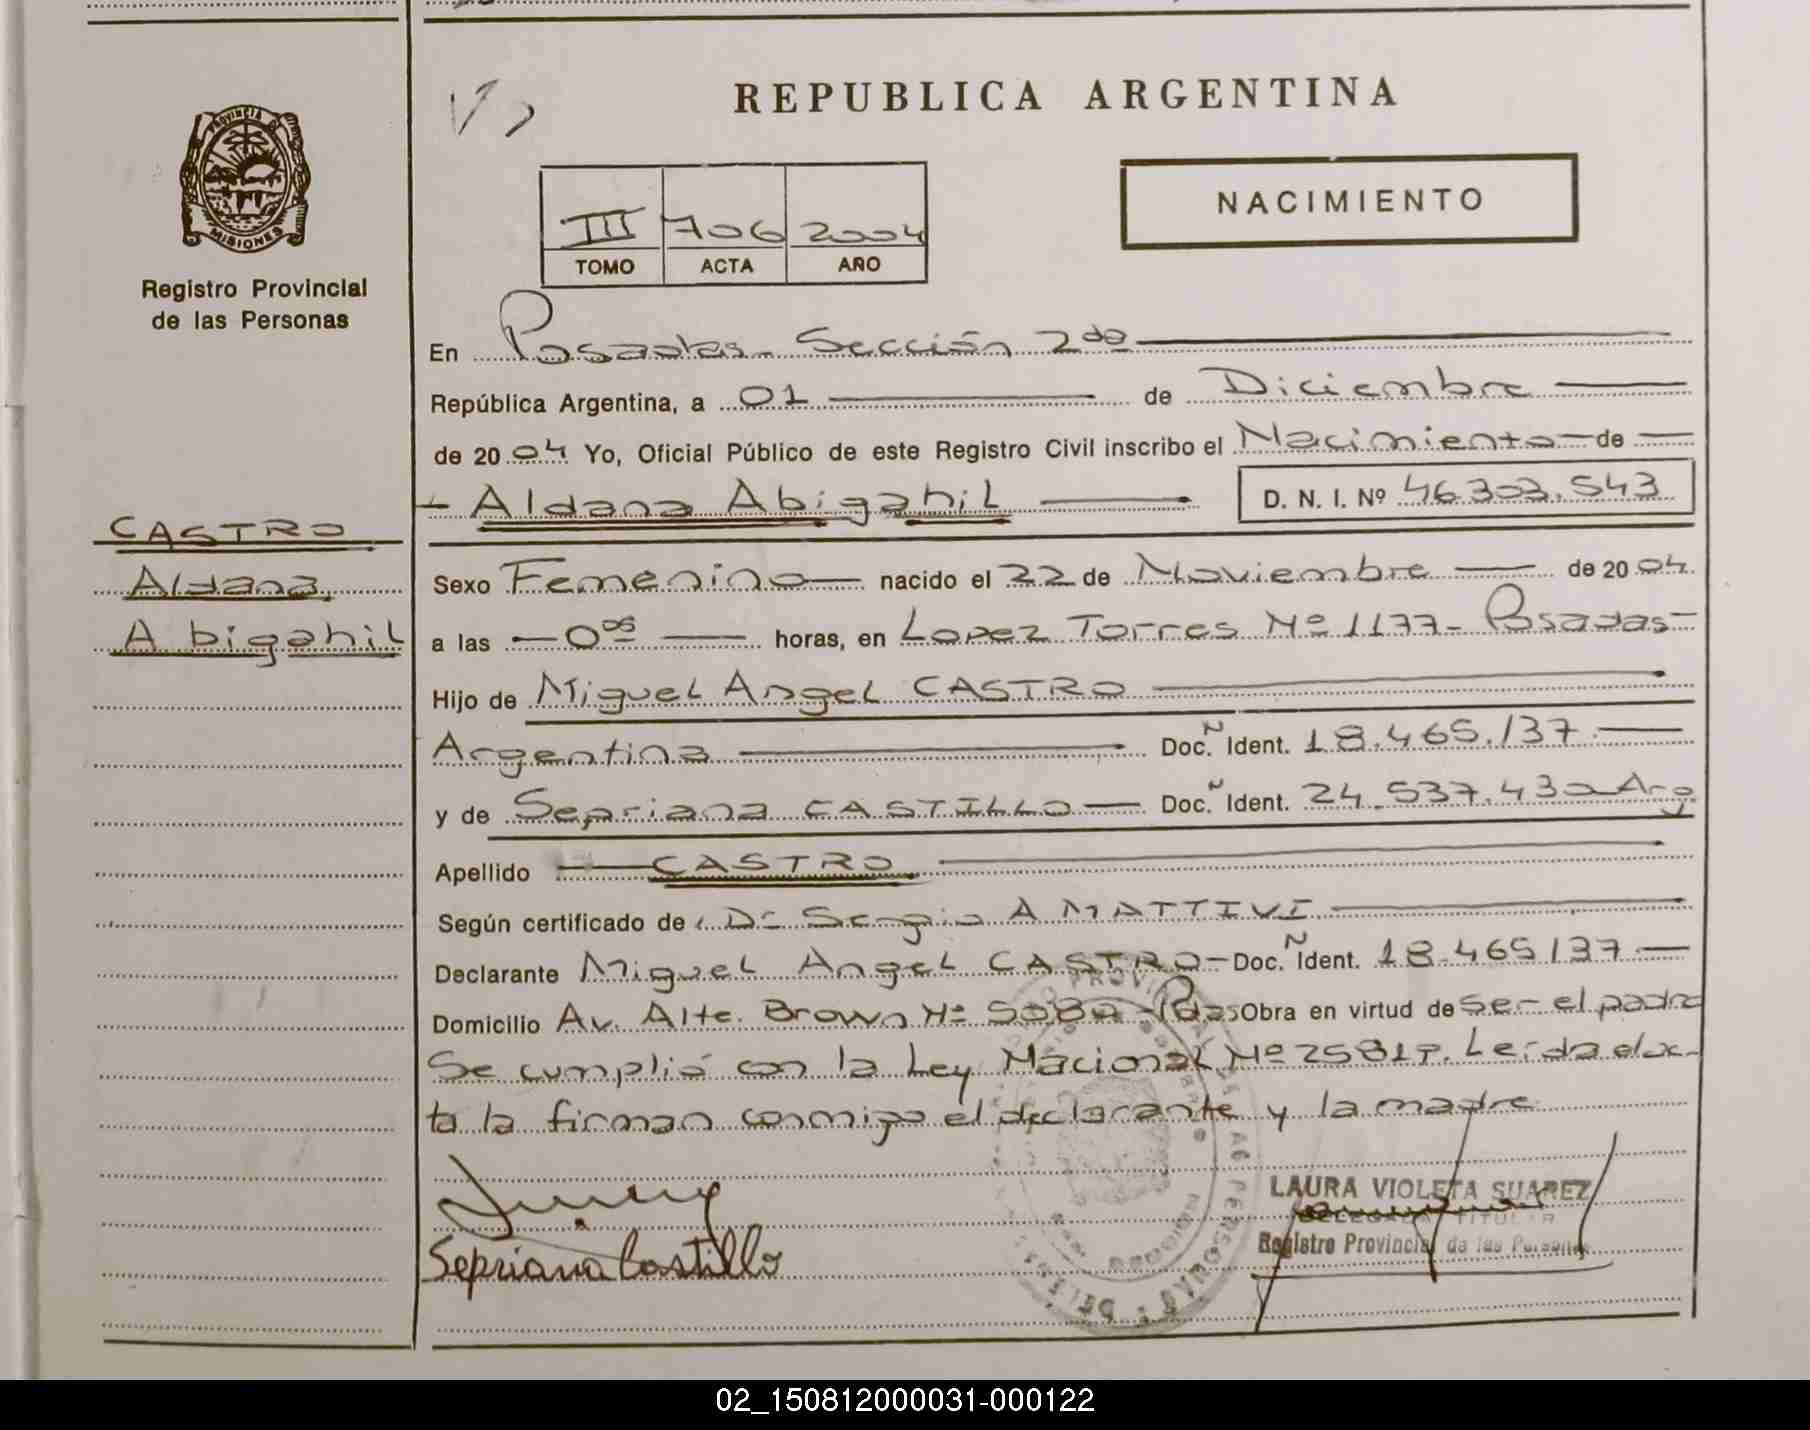 REPUBLICA ARGENTINA
PROVINCIA D
MISIONES
Registro Provincial
de las Personas
NACIMIENTO
III 706 2004
TOMO ACTA AÑO
En Posadas - Sección 2da
República Argentina, a 01 de Diciembre
de 2004 Yo, Oficial Público de este Registro Civil inscribo el Nacimiento de
Aldana Abigahil D. N. I. Nº 46.303.543
CASTRO
Aldana
Abigahil
Sexo Femenino nacido el 22 de Noviembre de 2004
a las 0 05 horas, en Lopez Torres Nº 1177- Posadas-
Hijo de Miguel Angel CASTRO
Argentina Doc. Ñ Ident. 18.465.137
y de Sepriana CASTILLO Doc. Ñ Ident. 24.537.430 Arg
Apellido CASTRO
Según certificado de Dr Sergio A MATTIVI
Declarante Miguel Angel CASTRO - Doc. Ñ Ident. 18.465137
Domicilio Av. Alte. Brown Nº Pdas Obra en virtud de ser el padre
Se cumplió con la Ley Nacional Nº Leída el ac-
ta la firman conmigo el declarante y la madre
Sepriana Castillo
LAURA VIOLETA SUAREZ
DELEGADA TITULAR
Registro Provincial de las Personas
02_150812000031-000122